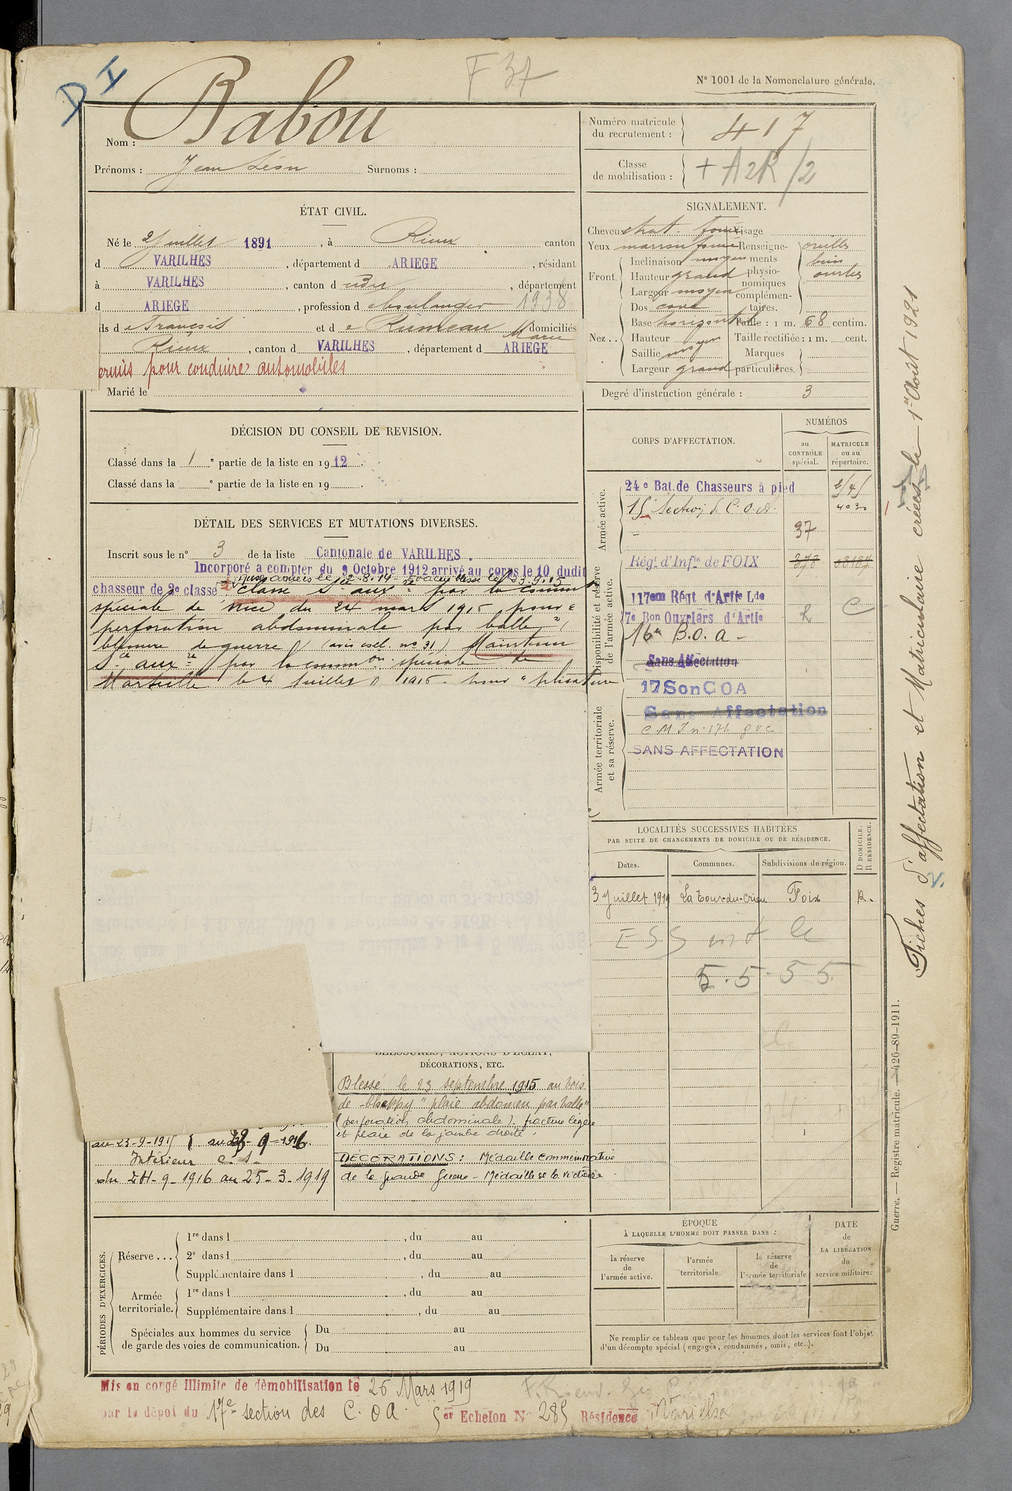 D I
F 37
N° 1001 de la Nomenclature générale.
Nom : Babou
Prénoms : Jean Léon Surnoms :
Numéro matricule du recrutement : 417
Classe de mobilisation : + A2R/2
ÉTAT CIVIL.
Né le 2 Juillet 1891, à Rieux canton
d VARILHES, département d ARIEGE, résidant
à VARILHES, canton d udu, département
d ARIEGE, profession d e boulanger 1938
ils d e François et d e Rumeau Marie domiciliés
Rieux, canton d VARILHES, département d ARIEGE
ermis pour conduire automobiles
Marié le
SIGNALEMENT.
Cheveux chat. foncé
isage
Yeux marron foncé
Front. Inclinaison moyen
Hauteur grand
Largeur moyen
Nez. Dos cave
Base horizontal
Hauteur moyen
Saillie moy
Largeur grand
Renseignements physionomiques complémentaires.
oreilles
bien
ourlées
Taille : 1 m. 68 centim.
Taille rectifiée : 1 m. cent.
Marques particulières.
Degré d'instruction générale : 3
DÉCISION DU CONSEIL DE REVISION.
Classé dans la 1e partie de la liste en 1912.
Classé dans la e partie de la liste en 19
DÉTAIL DES SERVICES ET MUTATIONS DIVERSES.
Inscrit sous le n° 3 de la liste Cantonale de VARILHES.
Incorporé a compter du 9 Octobre 1912 arrivé au corps le 10 dudit
chasseur de 2e classe
Aux armées le 2-8-14 - évacué blessé le 23.9.15
classé sce auxre par la comm
spéciale de Nice du 24 mars 1916 pour "
perforation abdominale par balle",
blessure de guerre, (avis coll. no 31) Maintenu
sce auxre par la common spéciale de
Marseille le 4 Juillet 1916 pour "
CORPS D'AFFECTATION.
NUMÉROS
au CONTRÔLE spécial.
MATRICULE ou au répertoire.
Armée active.
24e Bat. de Chasseurs à pied
15e Section d. C. O. A.
37
Disponibilité et réserve de l'armée active.
Régt. d'Infie de FOIX
117eme Régt d'Artie Lde
7e Bon Ouvriers d'Artie
16e B.O.a -
R
C
Sans Affectation
Armée territoriale et sa réserve.
17 Son COA
Sans Affectation
SANS AFFECTATION
Fiches d'affectation et Matriculaire créées le 1er Août 1921
LOCALITÉS SUCCESSIVES HABITÉES
PAR SUITE DE CHANGEMENTS DE DOMICILE OU DE RÉSIDENCE.
Dates. Communes. Subdivisions de région. D DOMICILE. R RÉSIDENCE.
3 Juillet 1919 La Tour-du-Crieu Foix R.
5.5.55
BLESSURES, ACTIONS D'ÉCLAT,
DÉCORATIONS, ETC.
Blessé le 23 septembre 1915 au bois
de "plaie abdomen par balle"
(perforation abdominale), fracture légère
et plaie de la jambe droite.
DÉCORATIONS : Médaille commémorative
de la grande Guerre - Médaille de la victoire
au 23-9-1915
Intérieur C.S.
du 24-9-1916 au 25-3-1919
PÉRIODES D'EXERCICES.
Réserve... 1re dans l , du au
2e dans l , du au
Supplémentaire dans l , du au
Armée territoriale. 1re dans l , du au
Supplémentaire dans l , du au
Spéciales aux hommes du service de garde des voies de communication. Du au
Du au
ÉPOQUE
À LAQUELLE L'HOMME DOIT PASSER DANS :
la réserve de l'armée active.
l'armée territoriale.
la réserve de l'armée territoriale
DATE DE LA LIBÉRATION du service militaire.
Ne remplir ce tableau que pour les hommes dont les services font l'objet
d'un décompte spécial (engagés, condamnés, omis, etc.).
Guerre. — Registre matricule. — 426-89-1911.
Mis en congé illimité de démobilisation le 26 Mars 1919
par le dépôt du 17e section des C.O.A. 5er Echelon N° 285 Résidence Varilhes